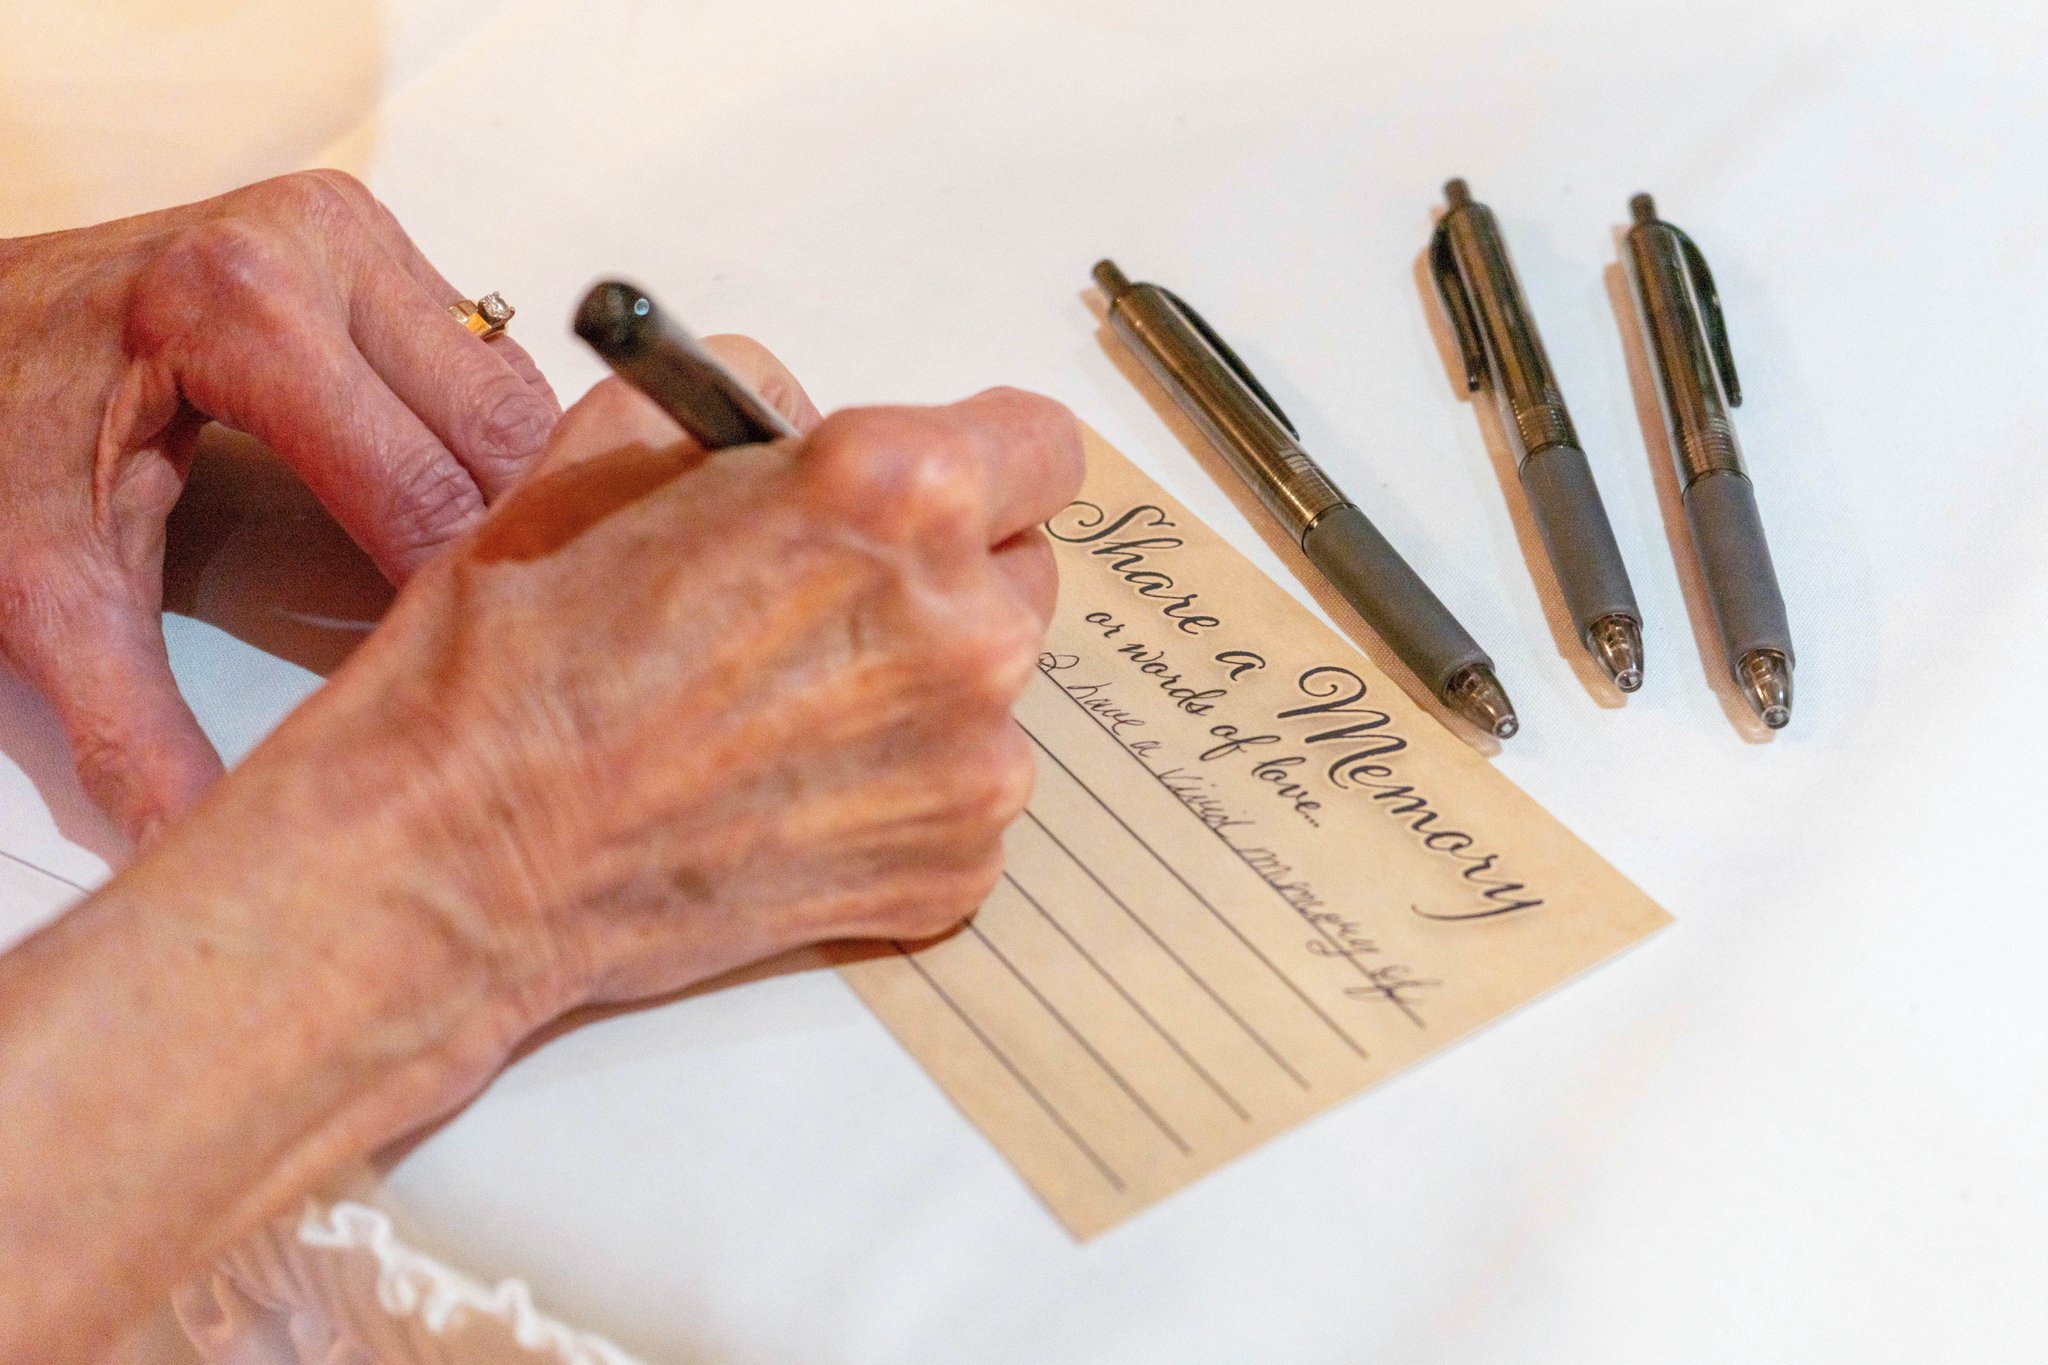 Share a Memory
or words of love...
I have a vivid memory of